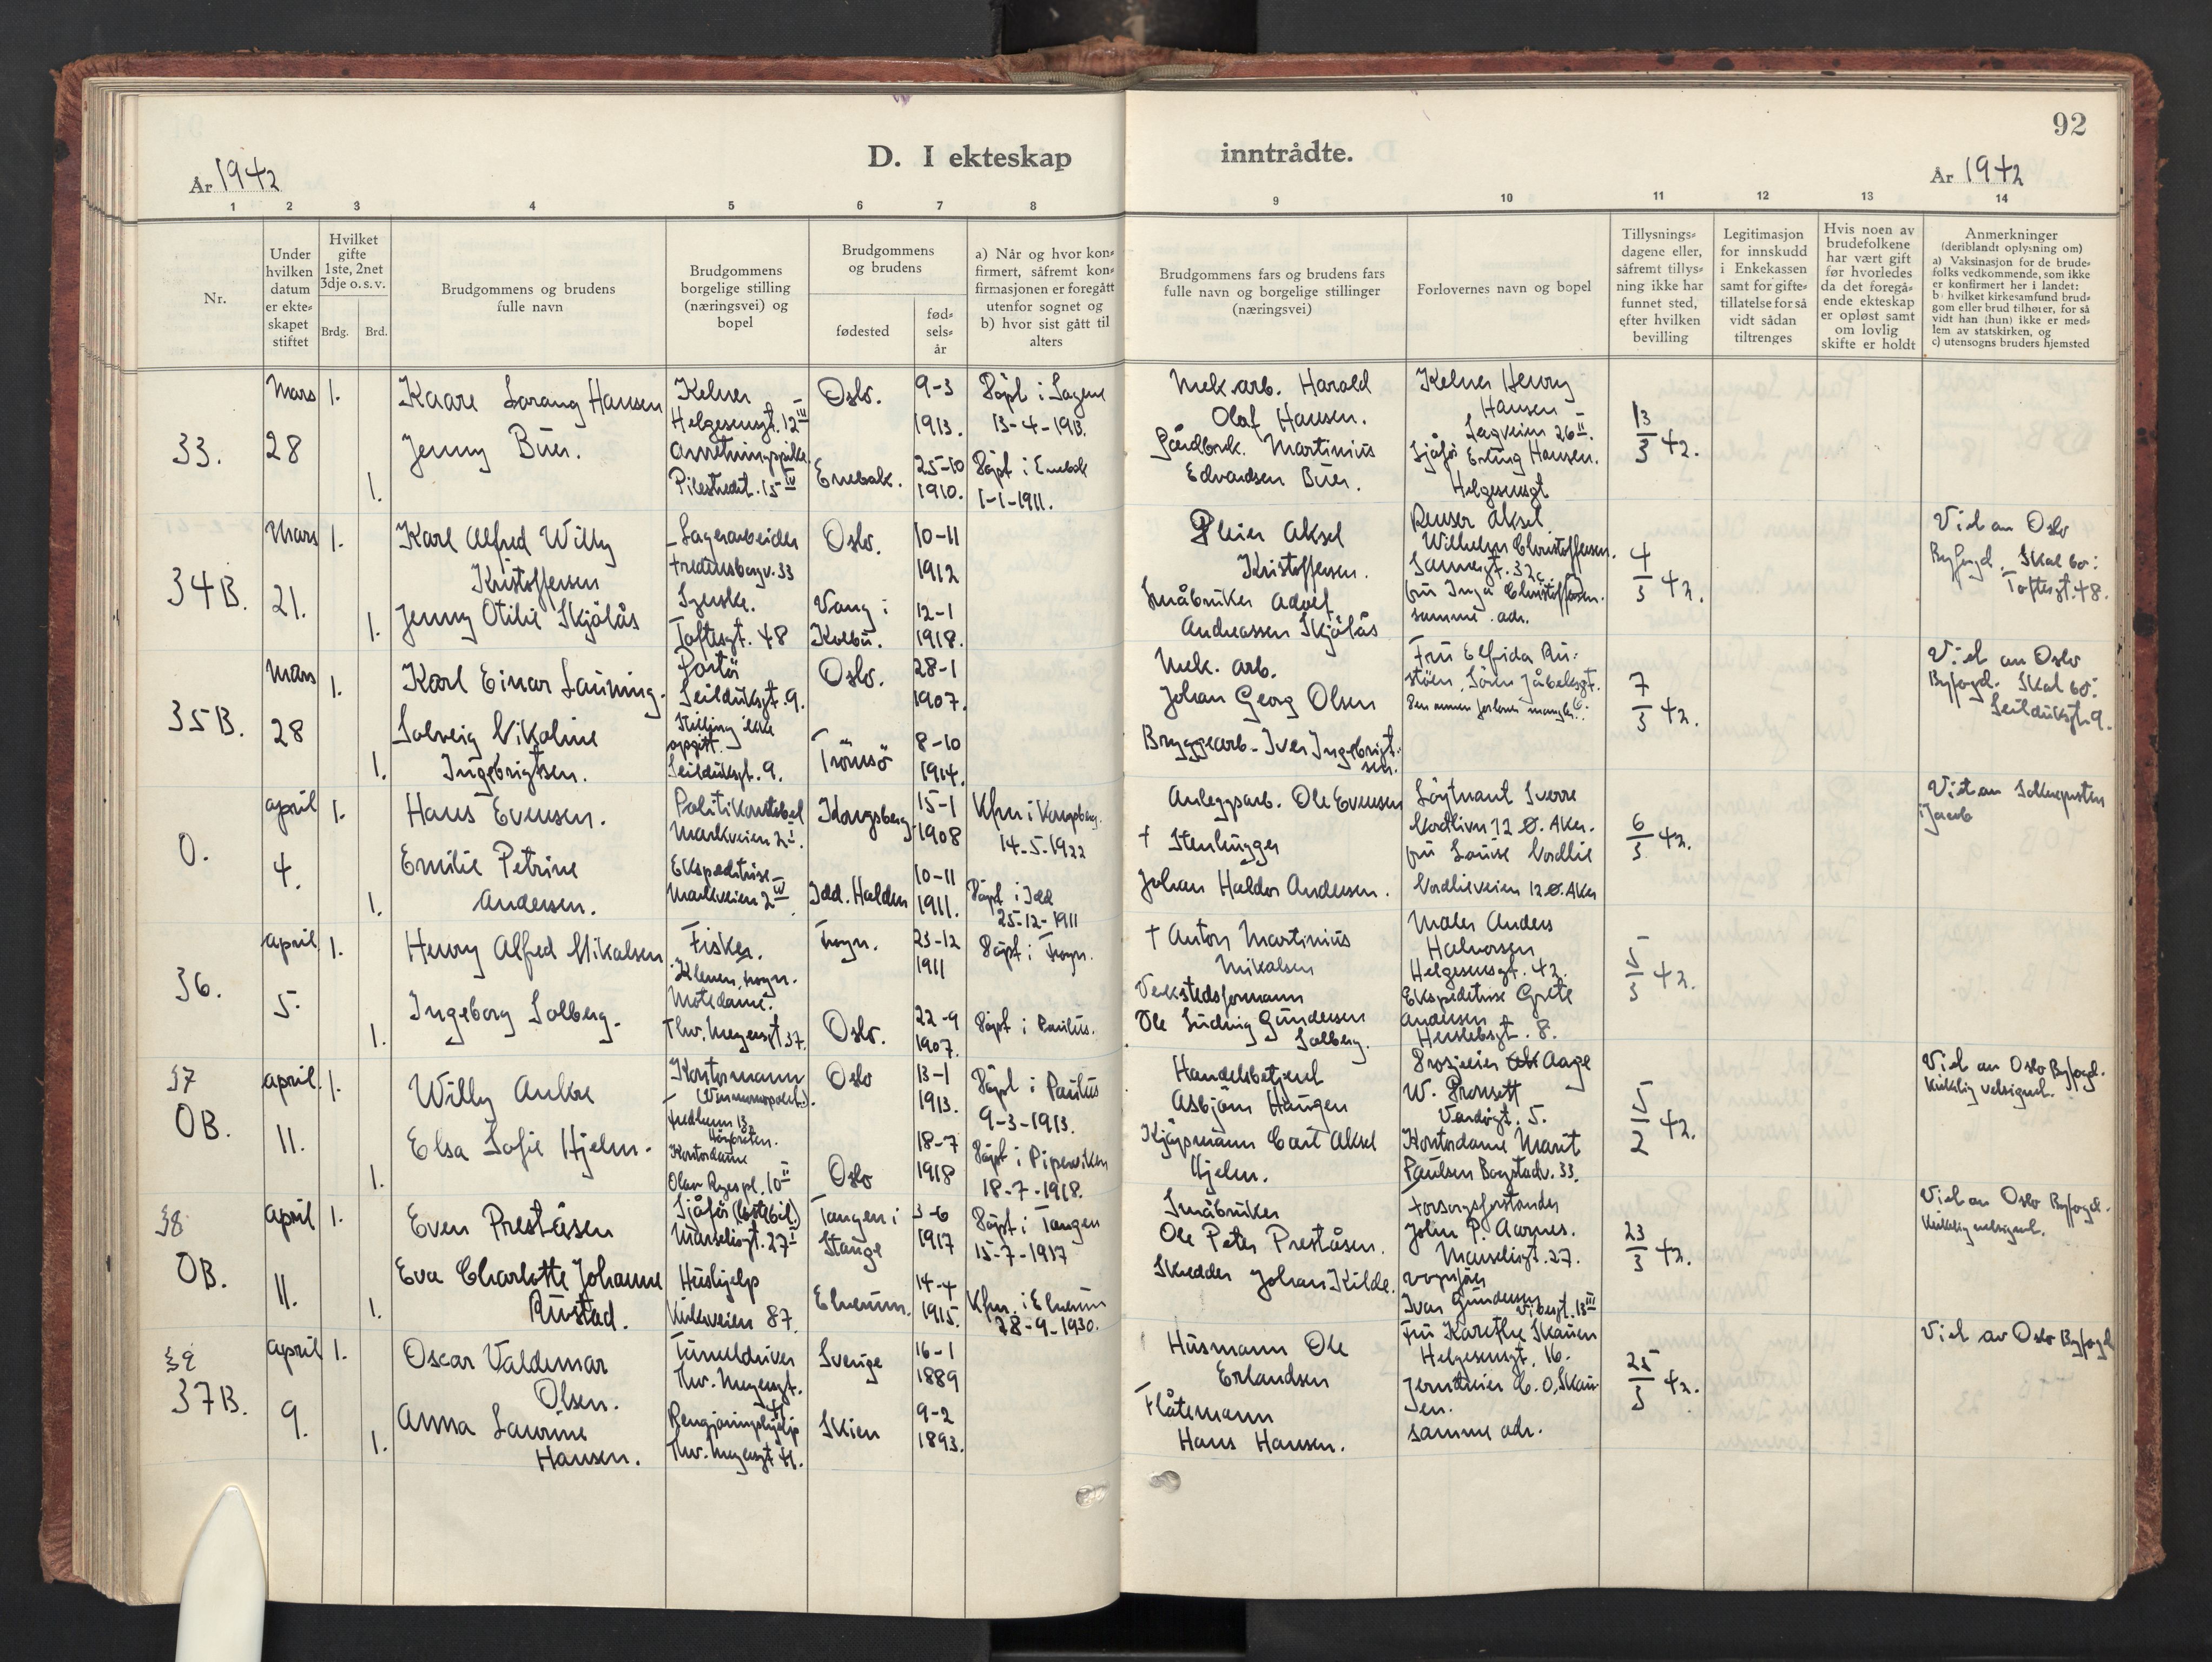 92
D. I ekteskap
inntrådte.
År 1942
År 1942
1 2 3 4 5 6 7 8
9 10 11 12 13 14
Nr.
Under
hvilken
datum
er ekte-
skapet
stiftet
Hvilket
gifte
1ste, 2net
3dje o. s. v.
Brdg.
Brd.
Brudgommens og brudens
fulle navn
Brudgommens
borgelige stilling
(næringsvei) og
bopel
Brudgommens
og brudens
fødested
fød-
sels-
år
a) Når og hvor kon-
firmert, såfremt kon-
firmasjonen er foregått
utenfor sognet og
b) hvor sist gått til
alters
Brudgommens fars og brudens fars
fulle navn og borgelige stillinger
(næringsvei)
Forlovernes navn og bopel
Tillysnings-
dagene eller,
såfremt tillys-
ning ikke har
funnet sted,
efter hvilken
bevilling
Legitimasjon
for innskudd
i Enkekassen
samt for gifte-
tillatelse for så
vidt sådan
tiltrenges
Hvis noen av
brudefolkene
har vært gift
før hvorledes
da det foregå-
ende ekteskap
er opløst samt
om lovlig
skifte er holdt
Anmerkninger
(deriblandt oplysning om)
a) Vaksinasjon for de brude-
folks vedkommende, som ikke
er konfirmert her i landet:
b) hvilket kirkesamfund brud-
gom eller brud tilhører, for så
vidt han (hun) ikke er med-
lem av statskirken, og
c) utensogns bruders hjemsted
33.
Mars
28
1.
1.
Kaare Sarang Hansen
Jenny Buer.
Kelner
Helgesensgt. 12 III
Pilestredet. 15 IV
Oslo.
Enebak.
9-3
1913.
25-10
1910.
Döpt i Sagene
13-4-1913.
Döpt i Enebak
1-1-1911.
Mek. arb. Harald
Olaf Hansen.
Gårdbruk. Martinius
Edvardsen Buer.
Kelner Henry
Hansen
26 II.
Sjåfør Erling Hansen.
Helgesensgt
13/3 42.
34B.
Mars
21.
1.
1.
Karl Alfred Willy
Kristoffersen
Jenny Otilie Skjölås
Lagerarbeider
Fredensborgv. 33
Syerske.
Toftesgt. 48
Oslo.
Vang i
Kolbu.
10-11
1912
12-1
1918.
Pleier Aksel
Kristoffersen.
Småbruker Adolf
Andreassen Skjölås
Renser Aksel
Wilhelm Christoffersen.
Sannergt. 32c
fru Inga Christoffersen.
samme adr.
4/3 42.
Viet av Oslo
Byfogd. Skal bo:
Toftesgt. 48.
35B.
Mars
28
1.
1.
Karl Einar Lauming.
Solveig Nikoline
Ingebrigtsen.
Portör
Seilduksgt. 9.
Stilling ikke
opgitt.
Seilduksgt. 9.
Oslo.
Tromsö
28-1
1907.
8-10
1914.
Mek. arb.
Johan Georg Olsen
Bryggearb. Iver Ingebrigt-
sen.
Fru Elfrida Ru-
stöen, Sören Jåbeksgt.
Den annen forlover mangler.
7/3 42.
Viet av Oslo
Byfogd. Skal bo:
Seilduksgt. 9.
0.
april
4.
1.
1.
Hans Evensen.
Emilie Petrine
Andersen.
Politikonstabel
Markveien 2 I.
Ekspeditrise
Markveien 2 IV.
Kongsberg
Idd. Halden
15-1
1908
10-11
1911.
Kfm i Kongsberg.
14-5-1922
Döpt i Idd
25-12-1911
Anleggsarb. Ole Evensen
† Stenhugger
Johan Haldor Andersen.
Löytnant Sverre
Nordlivn 12 Ø. Aker.
fru Louise Nordlie
Nordlieveien 12 Ø. Aker
6/3 42.
Viet av Sokneprsten
i Jacob
36.
april
5.
1.
1.
Henry Alfred Mikalsen
Ingeborg Solberg.
Fisker.
Motedame.
Thv. Meyersgt 37.
Frogn.
Oslo.
23-12
1911
22-9
1907.
Döpt i Frogn.
Döpt i Paulus.
† Anton Martinius
Mikalsen
Verkstedsformann
Ole Ludvig Gundersen
Solberg.
Maler Anders
Halvorsen
Helgesensgt. 42.
Ekspeditrise Grete
Andersen
Herslebsgt. 8.
5/3 42.
37
OB.
april
11.
1.
1.
Willy Aukbe
Elsa Sofie Hjelm.
Kontormann
(Vinmonopolet.).
Fredheim 13,
Höybråten.
Kontordame
Olav Ryes pl. 10 II
Oslo
Oslo
13-1
1913.
18-7
1918
Döpt i Paulus
9-3-1913.
Döpt i Piperviken
18-7-1918.
Handelsbetjent
Asbjörn Haugen
Kjöpmann Carl Aksel
Hjelm.
Aage
W. Pronsett
5.
Kontordame Marit
Paulsen Bogstadv. 33.
5/2 42.
Viet av Oslo Byfogd.
Kirkelig velsignet.
38
OB.
april
11.
1.
1.
Even Preståsen
Eva Charlotte Johanne
Rustad.
Sjåför (lastebil.)
Marselisgt. 27 I
Hushjelp
Kirkeveien 87.
Tangen i
Stange
Elverum.
3-6
1917
14-4
1915.
Döpt i Tangen
15-7-1917
Kfm. i Elverum
28-9-1930.
Småbruker
Ole Peter Preståsen.
Skredder Johan Kilde.
Forsorgsforstander
John P. Aarnes.
Marselisgt. 27.
Ivar Gundersen
Vibesgt. 13 III
23/3 42.
Viet av Oslo Byfogd.
Kirkelig velsignet.
39
37B.
april
9.
1.
1.
Oscar Valdemar
Olsen.
Anna Laurine
Hansen.
Tunneldriver
Thv. Meyersgt.
41
Rengjöringshjelp
Thv. Meyersgt 41.
Sverige
Skien
16-1
1889
9-2
1893.
Husmann Ole
Erlandsen
Flåtemann
Hans Hansen.
Fru Karethe Skauen
Helgesensgt. 16.
Jerndreier C. O. Skau-
en.
samme adr.
25/3 42.
Viet av Oslo Byfogd